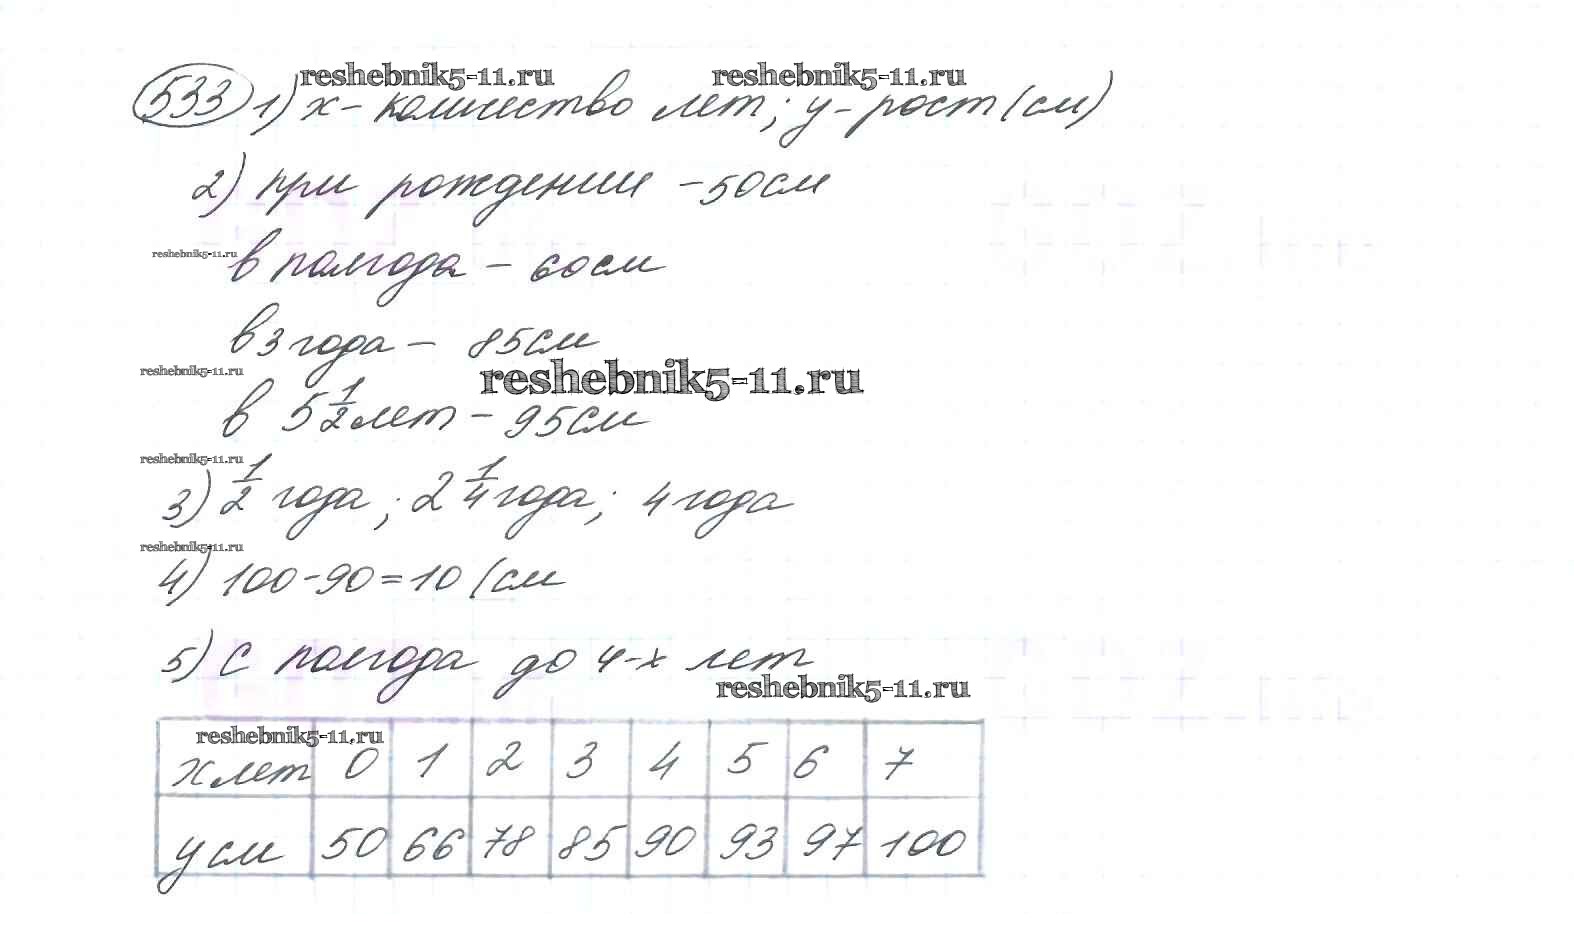 reshebnik5-11.ru reshebnik5-11.ru
533 1) х - количество лет; у - рост (см)
2) при рождении - 50 см
reshebnik5-11.ru
в полгода - 60 см
в 3 года - 85 см
reshebnik5-11.ru reshebnik5-11.ru
в 5 1/2 лет - 95 см
reshebnik5-11.ru
3) 1/2 года; 2 1/4 года; 4 года
reshebnik5-11.ru
4) 100 - 90 = 10 (см
5) С полгода до 4-х лет
reshebnik5-11.ru
reshebnik5-11.ru
х лет 0 1 2 3 4 5 6 7
у см 50 66 78 85 90 93 97 100